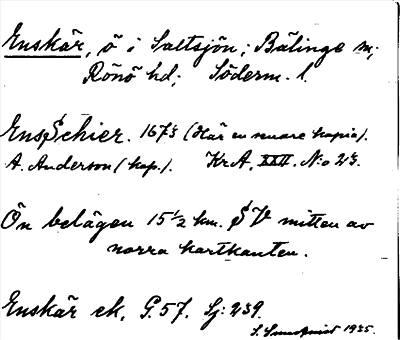 Enskär, ö i Saltsjön; Bälinge sn;
Rönö hd; Söderm. l.
EnsSchier. 1673 (Här en senare kopia).
A. Anderson (kop.). KrA, XXII. N:o 23.
Ön belägen 15 1/2 km. SV mitten av
norra kartkanten.
Enskär ek. G. 57. Sj: 239.
S. Sundqvist 1935.